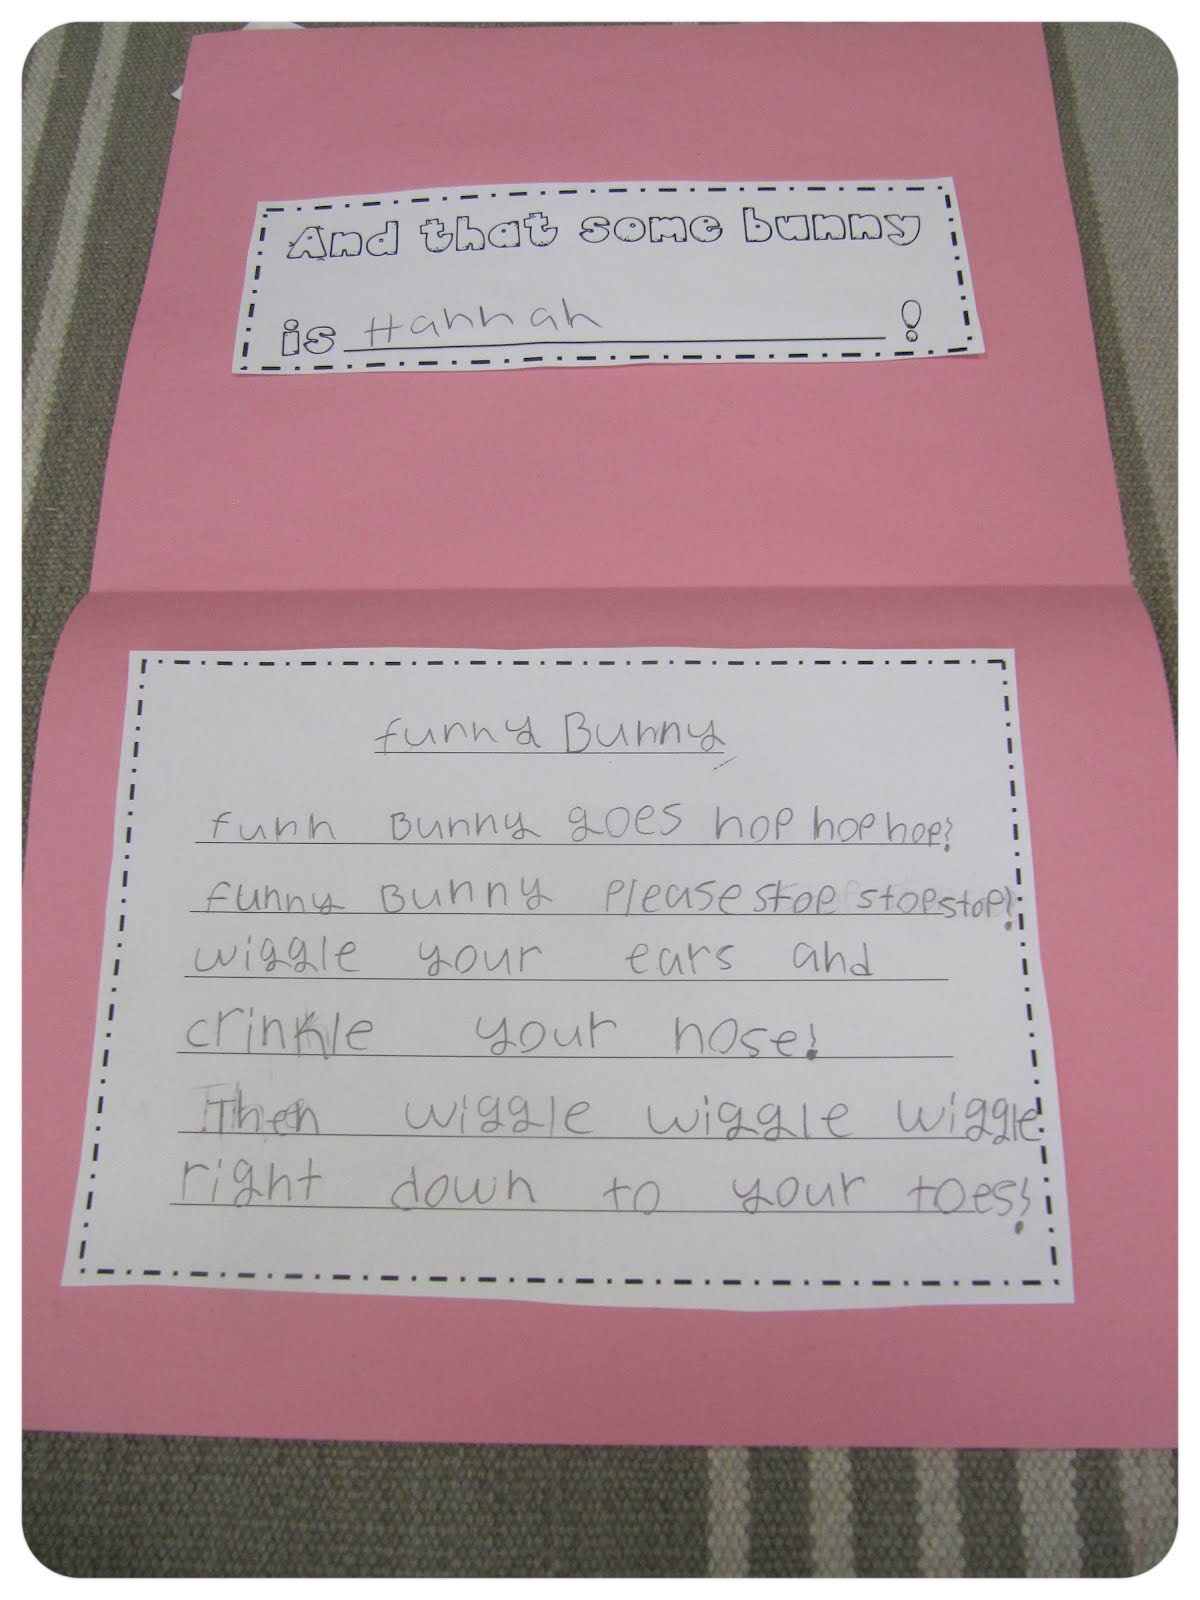 And that some bunny
is Hannah !
funny Bunny
funn Bunny goes hop hop hop!
funny Bunny Please stop stop stop!
wiggle your ears and
crinkle your nose!
Then wiggle wiggle wiggle
right down to your toes!